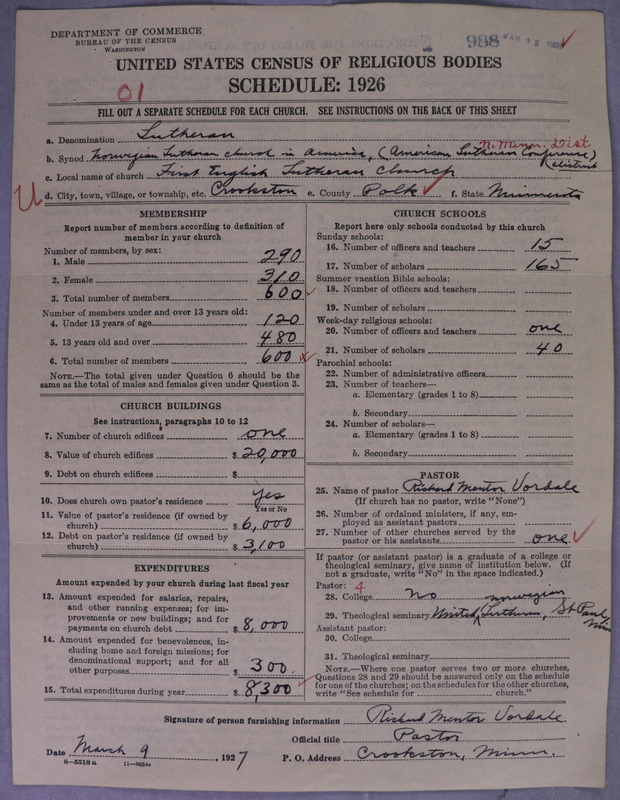 DEPARTMENT OF COMMERCE
BUREAU OF THE CENSUS
WASHINGTON
988 MAR 12
UNITED STATES CENSUS OF RELIGIOUS BODIES
SCHEDULE: 1926
01
FILL OUT A SEPARATE SCHEDULE FOR EACH CHURCH. SEE INSTRUCTIONS ON THE BACK OF THIS SHEET
a. Denomination Lutheran
N. Minn. Dist.
b. Synod Norwegian Lutheran church in America, (American Lutheran Conference) (district
c. Local name of church First English Lutheran church
U d. City, town, village, or township, etc. Crookston e. County Polk f. State Minnesota
MEMBERSHIP
Report number of members according to definition of member in your church
Number of members, by sex:
1. Male 290
2. Female 310
3. Total number of members 600
Number of members under and over 13 years old:
4. Under 13 years of age 120
5. 13 years old and over 480
6. Total number of members 600 x
NOTE.—The total given under Question 6 should be
same as the total of males and females given under Question 3.
CHURCH BUILDINGS
See instructions, paragraphs 10 to 12
7. Number of church edifices one
8. Value of church edifices $ 20,000
9. Debt on church edifices $
10. Does church own pastor's residence yes
Yes or No
11. Value of pastor's residence (if owned by
church) $ 6,000
12. Debt on pastor's residence (if owned by
church) $ 3,100
EXPENDITURES
Amount expended by your church during last fiscal year
13. Amount expended for salaries, repairs,
and other running expenses; for im-
provements or new buildings; and for
payments on church debt $ 8,000
14. Amount expended for benevolences, in-
cluding home and foreign missions; for
denominational support; and for all
other purposes 300
15. Total expenditures during year $ 8,300
CHURCH SCHOOLS
Report here only schools conducted by this church
Sunday schools:
16. Number of officers and teachers 15
17. Number of scholars 165
Summer vacation Bible schools:
18. Number of officers and teachers
19. Number of scholars
Week-day religious schools:
20. Number of officers and teachers one
21. Number of scholars 40
Parochial schools:
22. Number of administrative officers
23. Number of teachers—
a. Elementary (grades 1 to 8)
b. Secondary
24. Number of scholars—
a. Elementary (grades 1 to 8)
b. Secondary
PASTOR
25. Name of pastor Richard Mentor Vordale
(If church has no pastor, write "None")
26. Number of ordained ministers, if any, em-
ployed as assistant pastors
27. Number of other churches served by the
pastor or his assistants one
If pastor (or assistant pastor) is a graduate of a college or
theological seminary, give name of institution below. (If
not a graduate, write "No" in the space indicated.)
Pastor: 4
28. College no
norwegian
29. Theological seminary United, Lutheran, St Paul, Minn
Assistant pastor:
30. College
31. Theological seminary
NOTE.—Where one pastor serves two or more churches,
Questions 28 and 29 should be answered only on the schedule
for one of the churches; on the schedules for the other churches,
write "See schedule for church."
Signature of person furnishing information Richard Mentor Vordale
Official title Pastor
Date March 9, 1927 P. O. Address Crookston, Minn.
8—5518 a